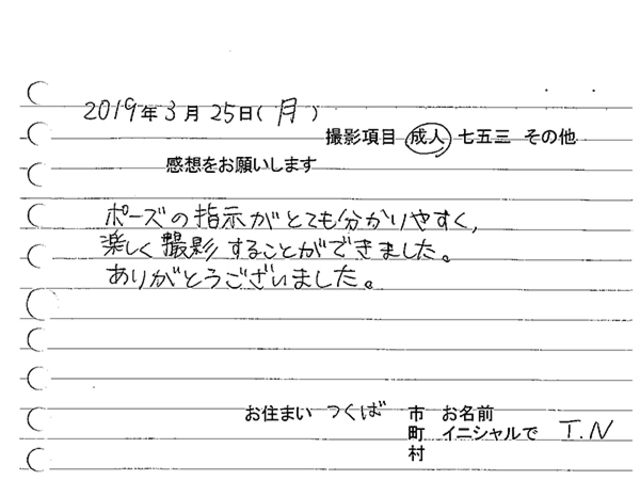 2019年3月25日(月)
撮影項目 成人 七五三 その他
感想をお願いします
ポーズの指示がとても分かりやすく,
楽しく撮影することができました。
ありがとうございました。
お住まい つくば 市 お名前
町 イニシャルで I.N
村